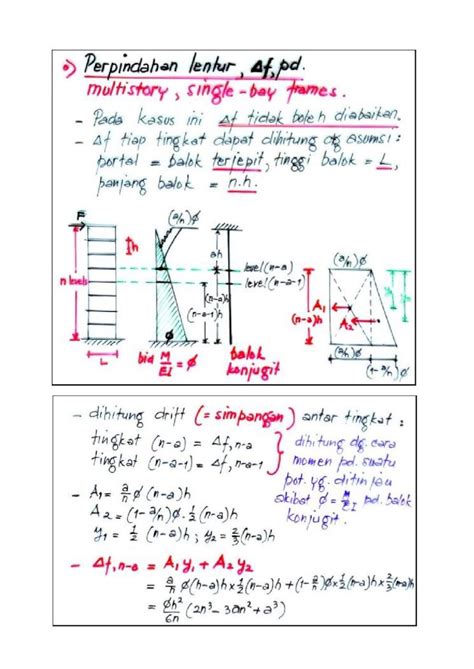 o) Perpindahan lentur, Δf, pd.
multistory, single-bay frames.
- Pada kasus ini Δf tidak boleh diabaikan.
- Δf tiap tingkat dapat dihitung dg asumsi:
portal = balok terjepit, tinggi balok = L,
panjang balok = n.h.
F
h
n levels
L
(a/n)φ
φ
bid M/EI = φ
ah
(n-a)h
(n-a-1)h
level (n-a)
level (n-a-1)
balok
konjugit
(a/n)φ
A1
A2
(n-a)h
(a/n)φ
(1-a/n)φ
- dihitung drift (= simpangan) antar tingkat:
tingkat (n-a) = Δf,n-a
tingkat (n-a-1) = Δf,n-a-1
dihitung dg. cara
momen pd. suatu
pot. yg. ditinjau
akibat φ = M/EI pd. balok
konjugit.
- A1 = a/n φ (n-a)h
A2 = (1-a/n)φ · 1/2 (n-a)h
y1 = 1/2 (n-a)h ; y2 = 2/3 (n-a)h
- Δf,n-a = A1 y1 + A2 y2
= a/n φ(n-a)h x 1/2 (n-a)h + (1-a/n)φ x 1/2 (n-a)h x 2/3 (n-a)h
= φh²/6n (2n³ - 3an² + a³)